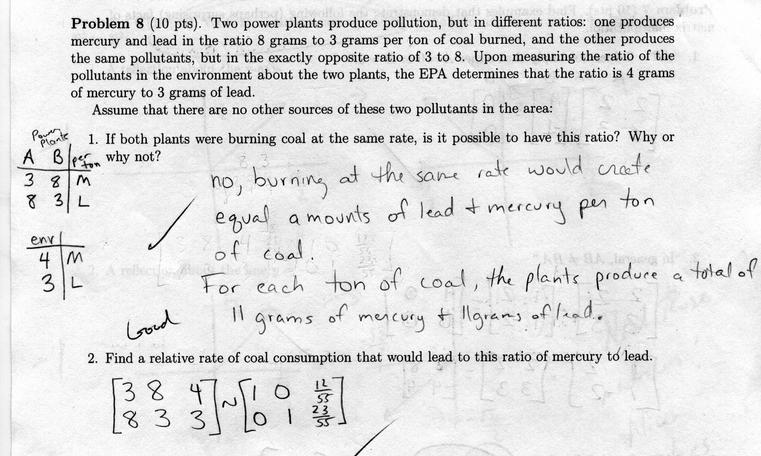 Problem 8 (10 pts). Two power plants produce pollution, but in different ratios: one produces
mercury and lead in the ratio 8 grams to 3 grams per ton of coal burned, and the other produces
the same pollutants, but in the exactly opposite ratio of 3 to 8. Upon measuring the ratio of the
pollutants in the environment about the two plants, the EPA determines that the ratio is 4 grams
of mercury to 3 grams of lead.
Assume that there are no other sources of these two pollutants in the area:
1. If both plants were burning coal at the same rate, is it possible to have this ratio? Why or
why not?
Power
Plants
A B per ton
3 8 M
8 3 L
env
4 M
3 L
no, burning at the same rate would create
equal amounts of lead + mercury per ton
of coal.
For each ton of coal, the plants produce a total of
11 grams of mercury + 11 grams of lead.
Good
2. Find a relative rate of coal consumption that would lead to this ratio of mercury to lead.
[3 8 4] ~ [1 0 12/55]
[8 3 3] [0 1 23/55]